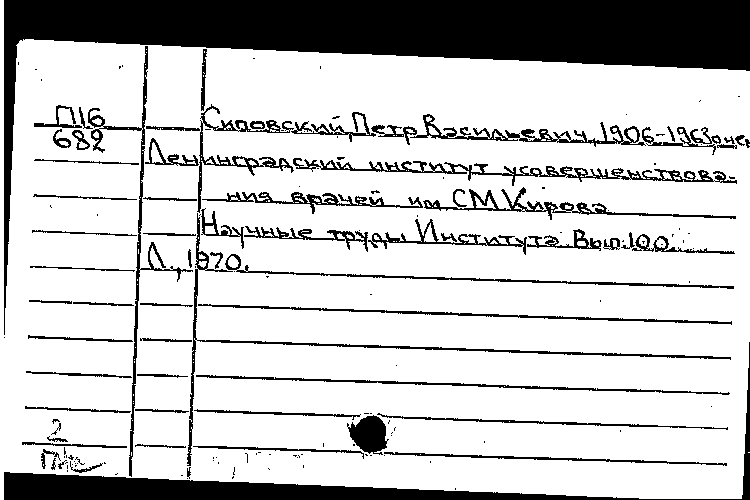 П16
682
Сиповский, Петр Васильевич, 1906-1963, о нем
Ленинградский институт усовершенствова-
ния врачей им С.М.Кирова
Научные труды Института. Вып.100.
Л., 1970.
2